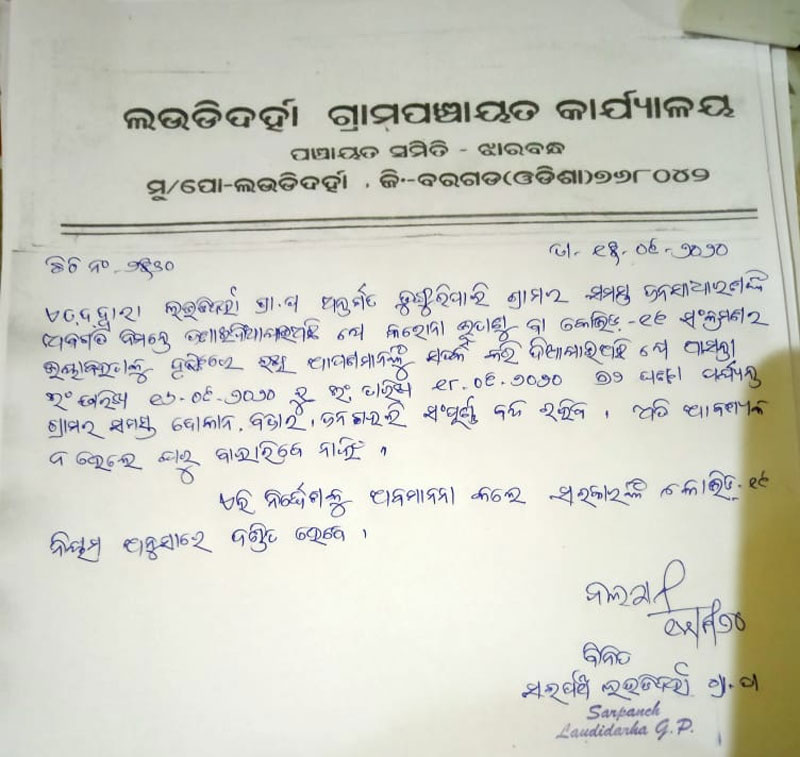 ଲଉଡିଦର୍ହା ଗ୍ରାମପଞ୍ଚାୟତ କାର୍ଯ୍ୟାଳୟ
ପାଞ୍ଚାୟତ ସମିତି - ଝାରବନ୍ଧ
ମୁ/ପୋ-ଲଉଡିଦର୍ହା . ଜି.-ବରଗଡ(ଓଡିଶା)୭୬୮୦୪୨
ଚିଠି ନଂ
ତା.
ଏତଦ୍ଦ୍ୱାରା ଲଉଡିଦର୍ହା ଗ୍ରା.ପ ଅନ୍ତର୍ଗତ ଡୁଙ୍ଗୁରିପାଲି ଗ୍ରାମର ସମସ୍ତ ଜନସାଧାରଣଙ୍କ
ଅବଗତି ନିମନ୍ତେ ଯେ କରୋନା ଭୂତାଣୁ ବା କୋଭିଡ୍-୧୯ ସଂକ୍ରମଣର
ଆପଣମାନଙ୍କୁ ସତର୍କ କରି ଦିଆଯାଉଅଛି ଯେ ଆସନ୍ତା
ଇଂ ତାରିଖ ୧୬.୦୯.୨୦୨୦ ରୁ ଇଂ ତାରିଖ ୧୮.୦୯.୨୦୨୦ ପର୍ଯ୍ୟନ୍ତ
ଗ୍ରାମର ସମସ୍ତ ଦୋକାନ, ବଜାର, ସଂପୂର୍ଣ୍ଣ ବନ୍ଦ ରହିବ । ଅତି ଆବଶ୍ୟକ
ନ ହେଲେ ଘରୁ ବାହାରିବେ ନାହିଁ ।
ଏହି ନିର୍ଦ୍ଦେଶକୁ ଅବମାନନା କଲେ ସରକାରଙ୍କ କୋଭିଡ୍-୧୯
ନିୟମ ଅନୁସାରେ ଦଣ୍ଡିତ ହେବେ ।
ବିନିତ
ସରପଞ୍ଚ ଲଉଡିଦର୍ହା ଗ୍ରା.ପ
Sarpanch
Laudidarha G.P.